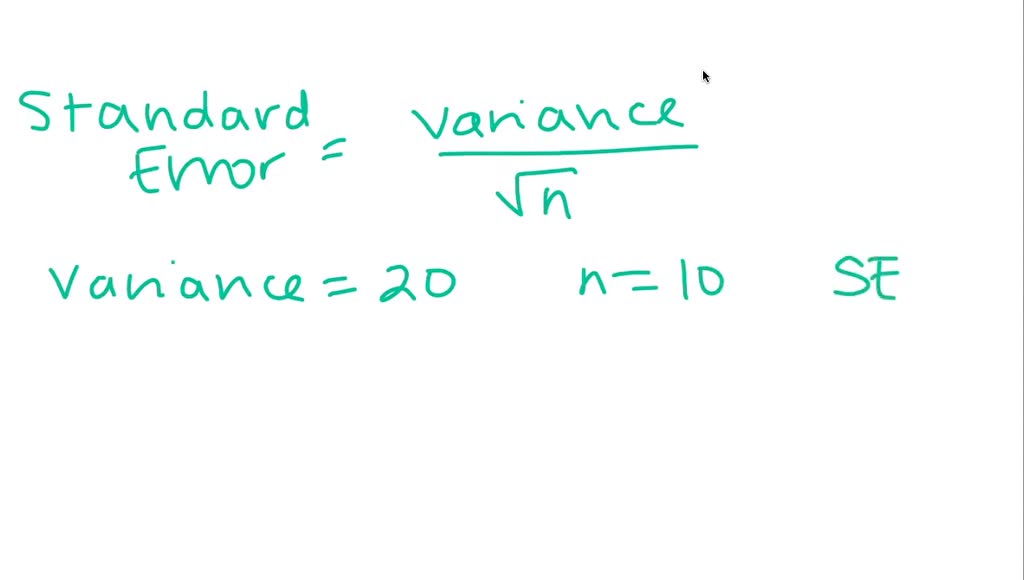 Standard
Error = variance / √n
variance = 20 n = 10 SE